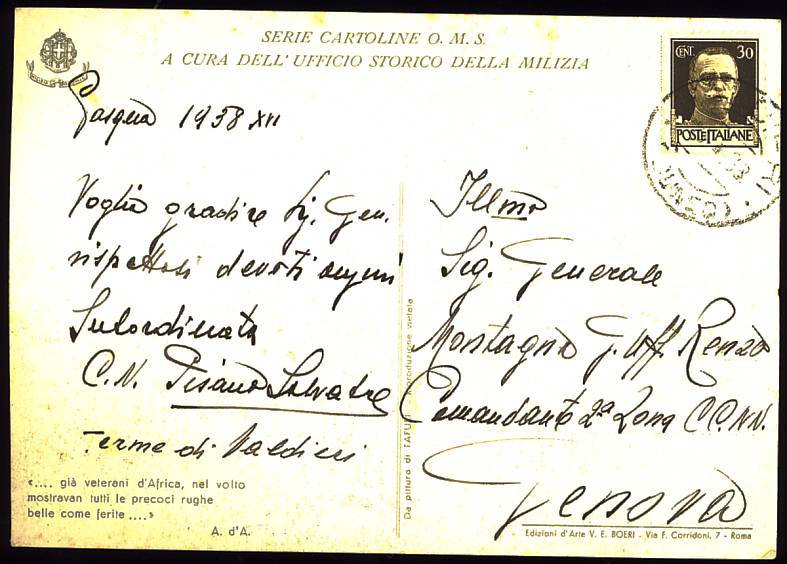 SERIE CARTOLINE O. M. S.
A CURA DELL' UFFICIO STORICO DELLA MILIZIA
CENT. 30
POSTE ITALIANE
Pasqua 1938 XVI
Voglia gradire Sig. Gen.
rispettosi devoti auguri
Subordinato
C. N. Pisano Salvatore
Terme di Valdieri
«.... già veterani d'Africa, nel volto
mostravan tutti le precoci rughe
belle come ferite ....»
A. d'A.
Da pittura di TAFURI - Riproduzione vietata
Illmo
Sig. Generale
Montagna G. Uff. Renzo
Comandante 2ª Zona CC.NN.
Genova
Edizioni d'Arte V. E. BOERI - Via F. Corridoni, 7 - Roma